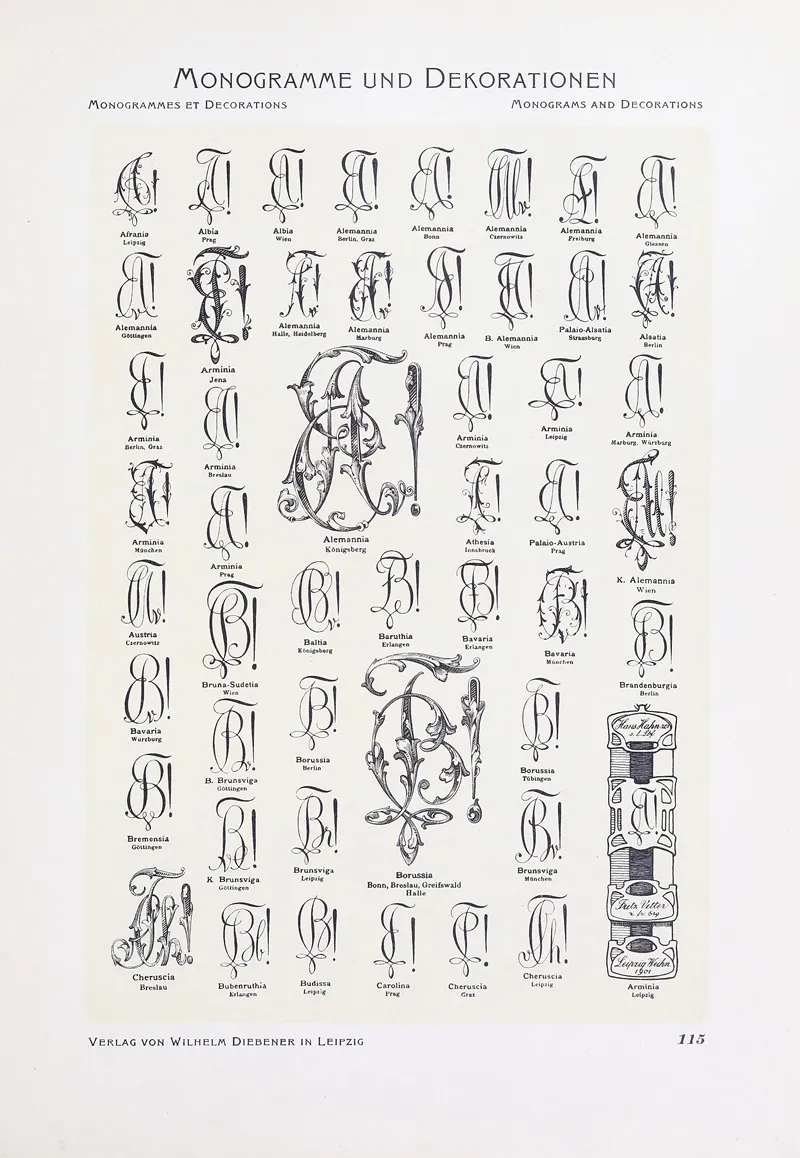 MONOGRAMME UND DEKORATIONEN
MONOGRAMMES ET DECORATIONS
MONOGRAMS AND DECORATIONS
Afrania
Leipzig
Albia
Prag
Albia
Wien
Alemannia
Berlin, Graz
Alemannia
Bonn
Alemannia
Czernowitz
Alemannia
Freiburg
Alemannia
Giessen
Alemannia
Göttingen
Arminia
Jena
Alemannia
Halle, Heidelberg
Alemannia
Marburg
Alemannia
Prag
B. Alemannia
Wien
Palaio-Alsatia
Strassburg
Alsatia
Berlin
Arminia
Berlin, Graz
Arminia
Breslau
Alemannia
Königsberg
Arminia
Czernowitz
Arminia
Leipzig
Arminia
Marburg, Würzburg
Arminia
München
Arminia
Prag
Athesia
Innsbruck
Palaio-Austria
Prag
K. Alemannia
Wien
Austria
Czernowitz
Bruna-Sudetia
Wien
Baltia
Königsberg
Baruthia
Erlangen
Bavaria
Erlangen
Bavaria
München
Brandenburgia
Berlin
Bavaria
Würzburg
B. Brunsviga
Göttingen
Borussia
Berlin
Borussia
Bonn, Breslau, Greifswald
Halle
Borussia
Tübingen
Bremensia
Göttingen
K Brunsviga
Göttingen
Brunsviga
Leipzig
Brunsviga
München
Cheruscia
Breslau
Bubenruthia
Erlangen
Budissa
Leipzig
Carolina
Prag
Cheruscia
Graz
Cheruscia
Leipzig
Hans Hahn
s. l.
Fritz Vetter
Leipzig Weihn.
1901
Arminia
Leipzig
VERLAG VON WILHELM DIEBENER IN LEIPZIG
115